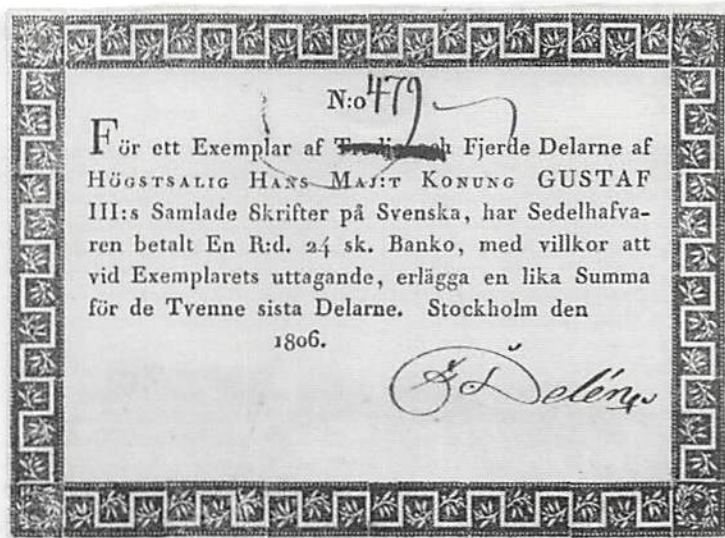 N:o 479
För ett Exemplar af Tredje och Fjerde Delarne af
HÖGSTSALIG HANS MAJ:T KONUNG GUSTAF
III:s Samlade Skrifter på Svenska, har Sedelhafva-
ren betalt En R:d. 24 sk. Banko, med villkor att
vid Exemplarets uttagande, erlägga en lika Summa
för de Tvenne sista Delarne. Stockholm den
1806.
Delén